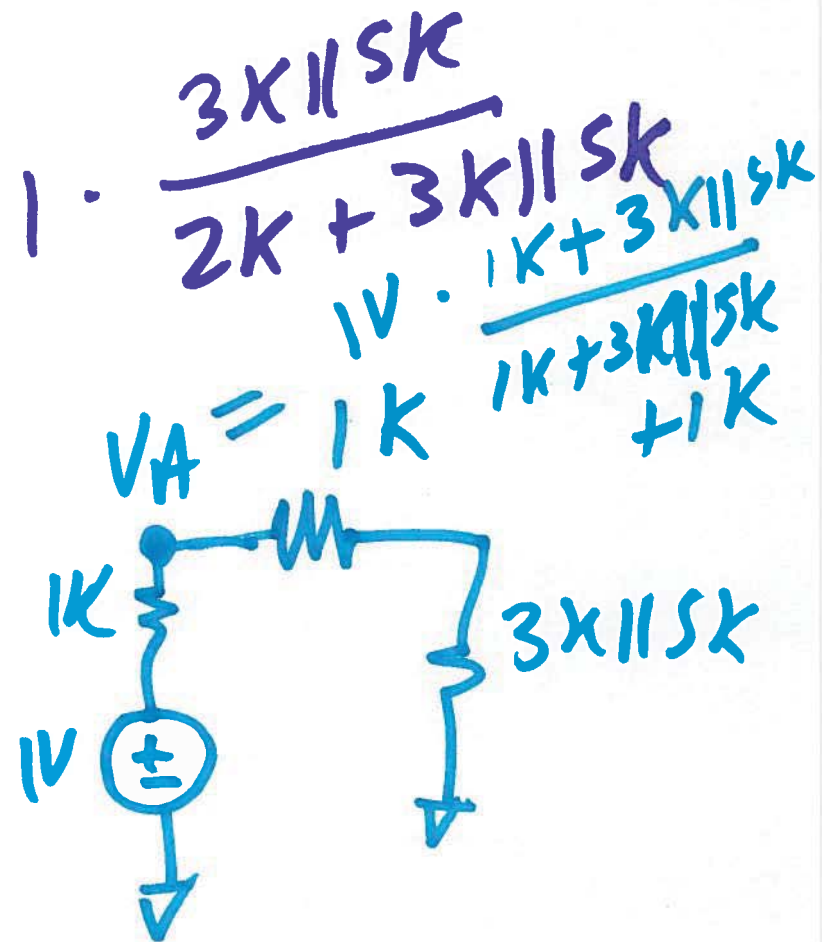 1 · 3K||5K
2K + 3K||5K
1V · 1K+3K||5K
1K+3K||5K
+1K
VA =
1K
1K
3K||5K
1V
+
−